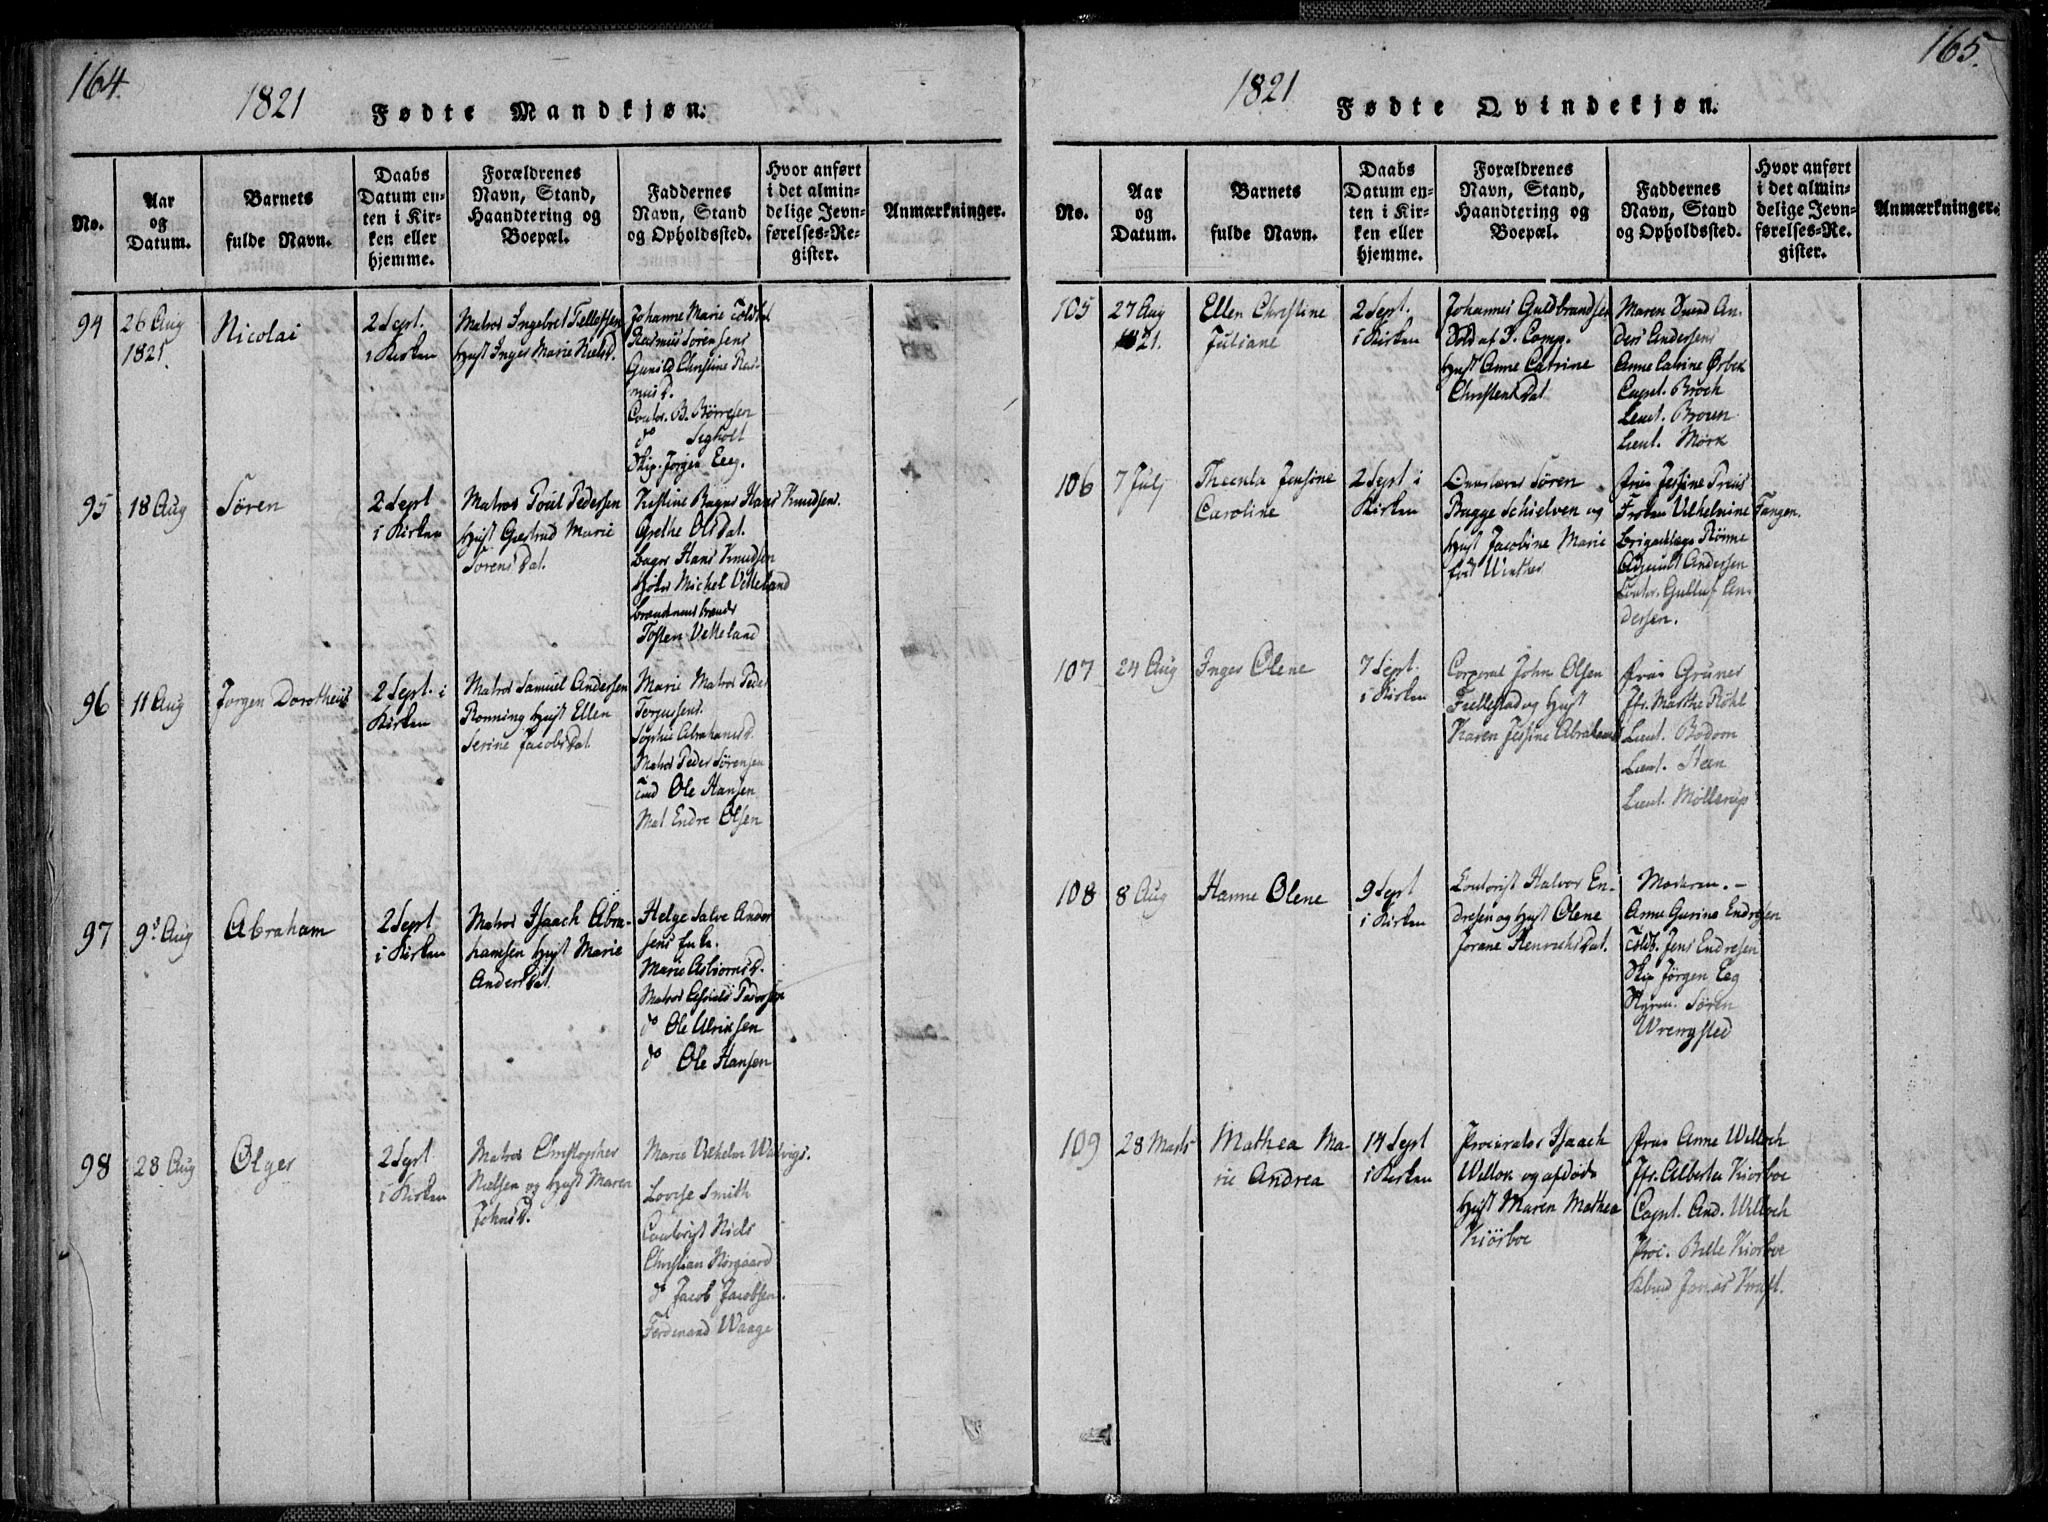 164.
1821 Fødte Mandkjøn.
No.
Aar
og
Datum.
Barnets
fulde Navn.
Daabs
Datum en-
ten i Kir-
ken eller
hjemme.
Forældrenes
Navn, Stand,
Haandtering og
Boepæl.
Faddernes
Navn, Stand
og Opholdssted.
Hvor anført
i det almin-
delige Jevn-
førelses-Re-
gister.
Anmærkninger.
94
26 Aug
1821
Nicolai
2 Sept.
i Kirken
Matros Ingebret Tellefsen
Hust Inger Marie Nielsd.
Johanne Marie
Rasmus Sørensens
Gunild Christine Ras-
musd.
Contor. B. Børresen
do Segholt
Skip. Jørgen Eeg.
95
18 Aug
Søren
2 Sept
i Kirken
Matros Poul Pedersen
Hust Giertrud Marie
Sørens Dat.
Kistine Bager Hans Knudsens.
Grethe Ols Dat.
bager Hans Knudsen
Michel Vetteland
Tosten Vetteland
96
11 Aug
Jørgen Dorotheus
2 Sept. i
Kirken
Matros Samuel Andersen
Rønning Hust Ellen
Serine Jacobs Dat.
Marie Matros Peder
Tergussens.
Sophie Abrahamsd.
Matros Peder Sørensen
Ole Hansen
Mat. Endre Olsen
97
9d Aug
Abraham
2 Sept
i Kirken
Matros Isaach Abra-
hamsen Hust Marie
Anders Dat
Helge Salve Ander
sens Enke.
Marie Asbiørnsd.
Matros Pedersen
do Ole Ulriksen
do Ole Hansen
98
28 Aug
Olger
2 Sept
i Kirken
Matros Christopher
Nielsen og Hust Maren
Johnsd.
Marie Vilhelm Walvigs.
Lovise Smith
Contorist Niels
Christian Nørgaard
do Jacob Jacobsen.
Ferdinand Waage
165.
1821 Fødte Qvindekjøn.
No.
Aar
og
Datum.
Barnets
fulde Navn.
Daabs
Datum en-
ten i Kir-
ken eller
hjemme.
Forældrenes
Navn, Stand,
Haandtering og
Boepæl.
Faddernes
Navn, Stand
og Opholdssted.
Hvor anført
i det almin-
delige Jevn-
førelses-Re-
gister.
Anmærkninger.
105
27 Aug
1821.
Ellen Christine
Juliane
2 Sept.
i Kirken
Johannes Guldbrandsen
Sold af J. Comp.
Hust Anne Catrine
Christens Dat
Maren An-
ders Andersens
Anne Catrine Ørbek
Capt. Broch
Lieut. Broun
Lieut. Mørk
106
7 Julj
Theenta Jensine
Caroline
2 Sept i
Kirken
Søren
Bagge Schielven og
Hust Jacobine Marie
født Winther
Frue Jessine Preus
Frøken Vilhelmine Fangen.
brigadelæge Rønne
Adjeunct Andersen
Contor. Gulluf An-
dersen.
107
24 Aug
Inger Olene
7 Sept.
i Kirken
Corporal John Olsen
Tvellestad og Hust
Karen Jessine Abrahams
Frue Gruner
Jfr. Marthe Rohl
Lieut. Bodom
Lieut. Steen
Lieut. Møllerup
108
8 Aug
Hanne Olene
9 Sept
i Kirken
Contorist Halvor En-
dresen og Hust Olene
Jorane Henrichs Dat.
Moderen. –
Anne Gurine Endresen
Toldb. Jens Endresen
Skip Jørgen Eeg
Styrm. Søren
Wrengsted
109
28 Marts
Mathea Ma-
rie Andrea
14 Sept
i Kirken
Procurator Isaach
Willok og afdøde
Hust Maren Mathea
Kiørboe
Frue Anne Willoch
Jfr. Alberta Kiørboe
Capt. And. Willoch
Proc. Bille Kiørboe
Jonas Kraft.